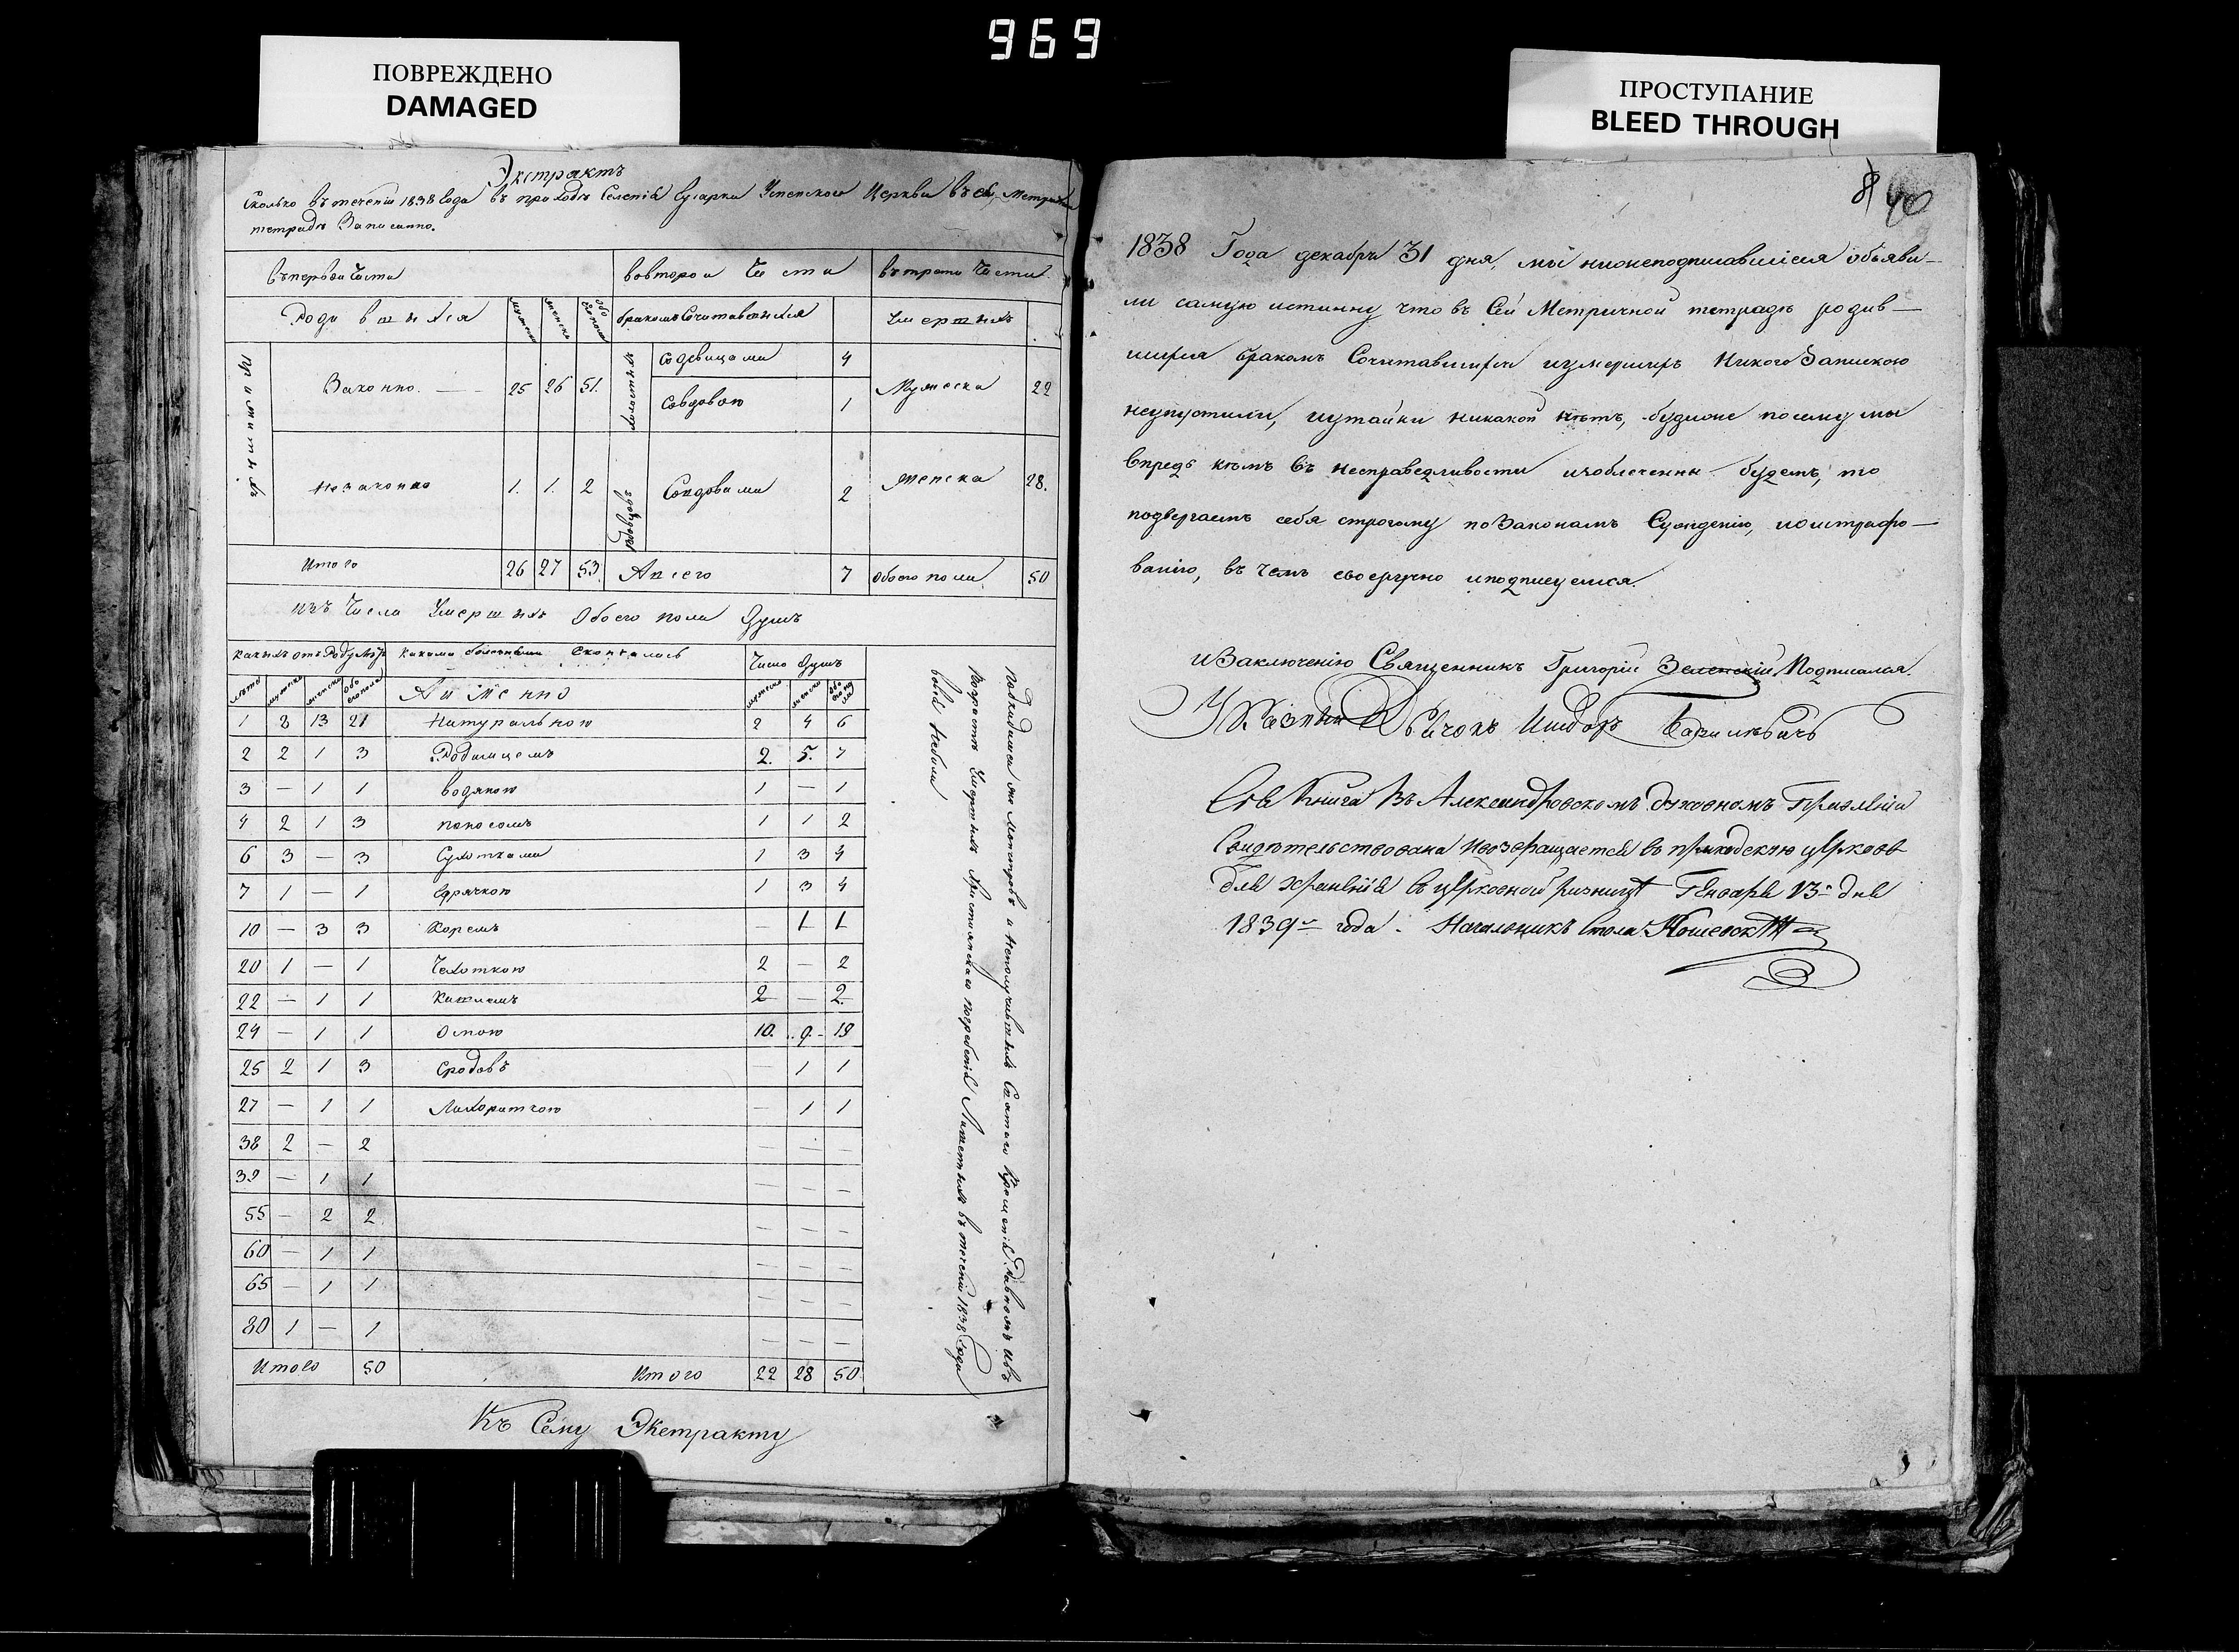 969
ПОВРЕЖДЕНО
DAMAGED
ПРОСТУПАНИЕ
BLEED THROUGH
Экстрактъ
Сколько въ теченіи 1838 Года въ приходѣ Селенія Успенской Церкви въ сей
тетрадѣ Записанно.
въ первой Части
во второй Части
въ третьи Части
Родившихся
мужеска
женска
обоего пола
бракомъ Сочитавшихся
Умершихъ
Законно.
25 26 51.
Содевицами 4
Совдовою 1
Мужеска 22
Незаконно
1. 1. 2
Совдовами 2
женска 28.
Итого
26 27 53.
7
Обоего пола 50
изъ Числа Умершихъ Обоего пола Душъ
какими болезньми скончались
Число Душъ
лѣта
мужеска
женска
обоего пола
Именно
мужеска
женска
1 8 13 21 Натуральною 2 4 6
2 2 1 3 Родимцемъ 2. 5. 7
3 — 1 1 водяною 1 — 1
4 2 1 3 поносомъ 1 1 2
6 3 — 3 Сухотками 1 3 4
7 1 — 1 Горячкою 1 3 4
10 — 3 3 Коремъ — 1 1
20 1 — 1 Чехоткою 2 — 2
22 — 1 1 Кашлемъ 2 — 2.
24 — 1 1 Оспою 10. 9 19
25 2 1 3 Сродовъ — 1 1
27 — 1 1 Лихораткою — 1 1
38 2 — 2 — — —
39 — 1 1 — — —
55 — 2 2 — — —
60 — 1 1 — — —
65 — 1 1 — — —
80 1 — 1 — — —
Итого 50 Итого 22 28 50
Подкидышей же и Неполучившихъ Святаго Крещенія
Умершихъ Христианскаго погребенія Лишенныхъ въ теченіи 1838 Года
Небыли
Къ Сему Экстракту
40
1838 Года декабря 31 дня, мы нижеподписавшіеся объяви-
ли самую истинну что въ Сей Метричной тетрадѣ родив-
шихся бракомъ Сочитавшихся иумершихъ Никого Запискою
неупустили, иутайки никакой нѣтъ, -будиже посему мы
впредь кѣмъ въ несправедливости изобличенны будемъ, то
подвергаемъ себя строгому поЗаконамъ Сужденію, иоштрафо-
ванію, въ чемъ своеручно иподписуемся.
иЗаключенію Священникъ Григорій Зеленскій Подписался.
Указный Дьячокъ Исидоръ Василіевичъ
Сія Книга Въ Александровскомъ духовномъ Правленіи
Свидѣтельствована ивозвращается въ приходскую церковь
для храненія въ церковной ризницѣ Генваря 13го дня
1839го года. Начальникъ Стола